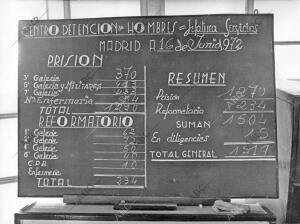 CENTRO DETENCION DE HOMBRES = Jefatura Servicios
MADRID A 16 de Junio 972
PRISION
3ª Galeria 370
5ª Galeria y Militares
7ª Galeria
Enfermeria
TOTAL
REFORMATORIO
1ª Galeria 62
2ª Galeria
4ª Galeria 50
6ª Galeria
C.P.B. 12
Enfermeria
TOTAL 234
RESUMEN
Prision 1270
Reformatorio 234
SUMAN 1504
En diligencias 15
TOTAL GENERAL 1519